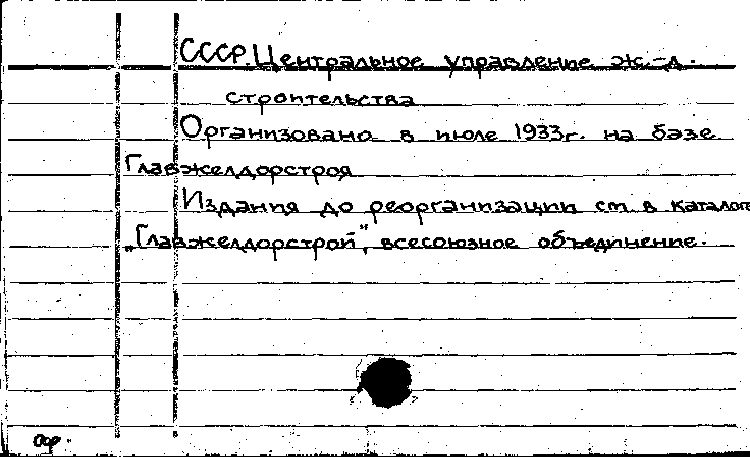 СССР. Центральное управление ж.-д.
строительства
Организовано в июле 1933г. на базе
Главжелдорстроя
Издания до реорганизации см. в каталог
„Главжелдорстрой", всесоюзное объединение.